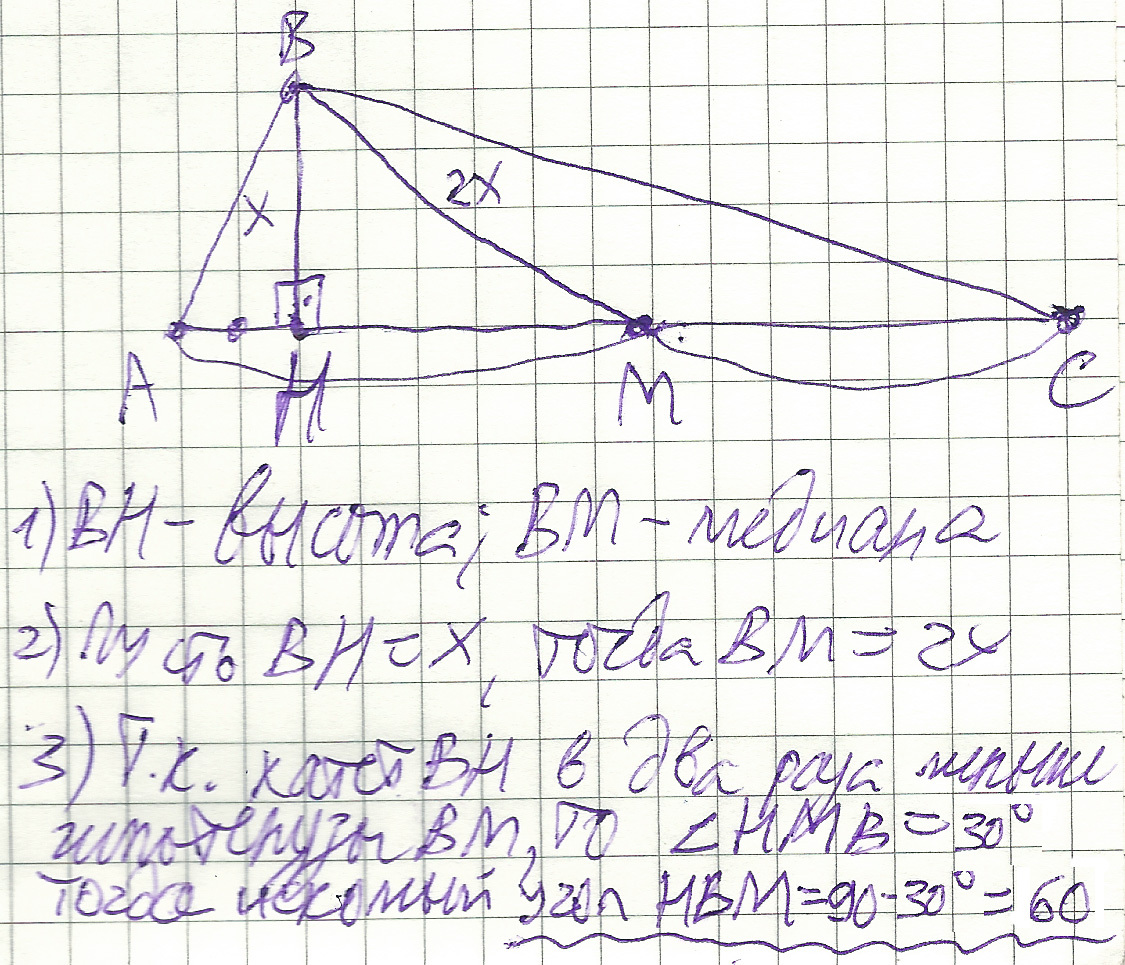 B
X
2X
A
H
M
C
1) BH - высота; BM - медиана
2) Пусть BH = X, тогда BM = 2X
3) Т.к. катет BH в два раза меньше
гипотенузы BM, то ∠HMB = 30°
тогда искомый угол HBM = 90-30° = 60